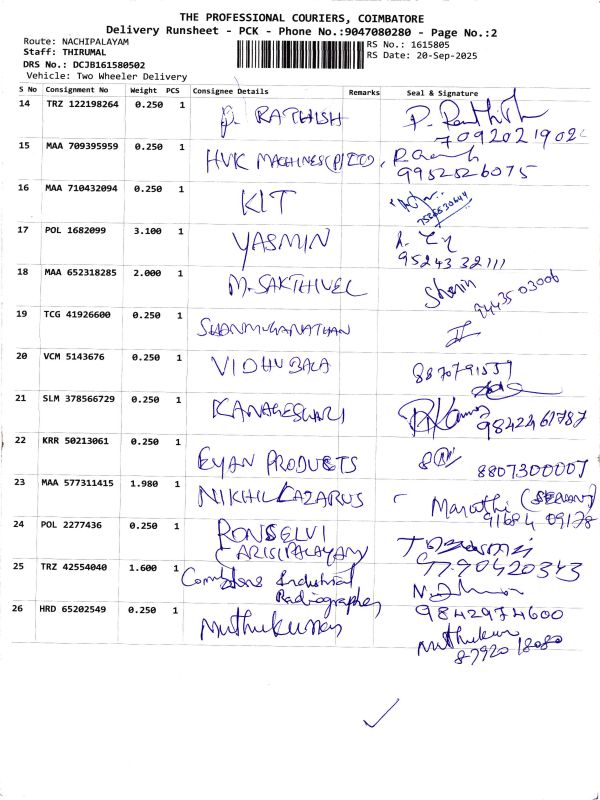 THE PROFESSIONAL COURIERS, COIMBATORE
Delivery Runsheet - PCK - Phone No.:9047080280 - Page No.:2
Route: NACHIPALAYAM
RS No.: 1615805
Staff: THIRUMAL
RS Date: 20-Sep-2025
DRS No.: DCJB161580502
Vehicle: Two Wheeler Delivery
S No Consignment No Weight PCS Consignee Details Remarks Seal & Signature
14 TRZ 122198264 0.250 1 P. RATHISH
7092021902
15 MAA 709395959 0.250 1 HVK MACHINES (P) LTD,
9952526075
16 MAA 710432094 0.250 1 KIT
17 POL 1682099 3.100 1 YASMIN
9524332111
18 MAA 652318285 2.000 1 M. SAKTHIVEL
94435 03006
19 TCG 41926600 0.250 1 SHANMUGANATHAN
20 VCM 5143676 0.250 1 VIDHUBALA 8870791559
21 SLM 378566729 0.250 1 KANAGESWARI
9842461787
22 KRR 50213061 0.250 1 EYAN PRODUCTS
8807300007
23 MAA 577311415 1.980 1 NIKHIL LAZARUS Marathi (SERVANT)
91684 09178
24 POL 2277436 0.250 1 RONSELVI
(ARISIPALAYAM)
9790420343
25 TRZ 42554040 1.600 1 Coimbatore Industrial
Radiographers
9842974600
26 HRD 65202549 0.250 1 Muthukumar Muthukumar
87920 18080